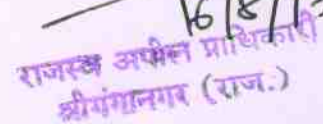 16/8/1
राजस्व अपील प्राधिकारी
श्रीगंगानगर (राज.)